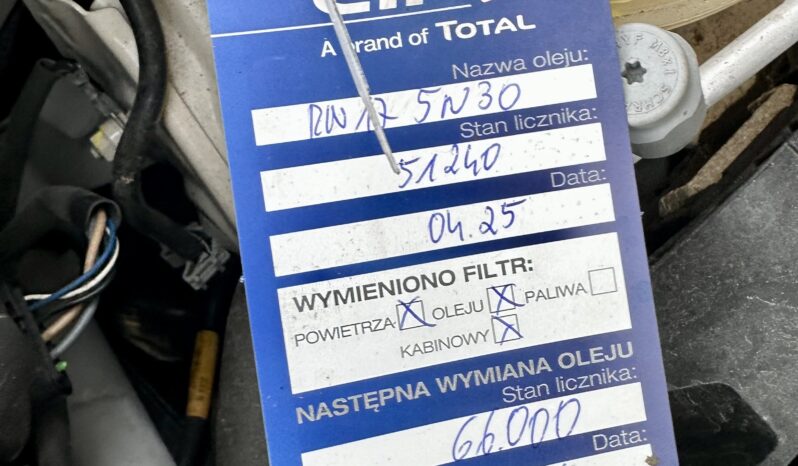 A brand of TOTAL
Nazwa oleju:
RN 17 5W30
Stan licznika:
51240
Data:
04.25
WYMIENIONO FILTR:
POWIETRZA X OLEJU X PALIWA
KABINOWY X
NASTĘPNA WYMIANA OLEJU
Stan licznika:
66.000
Data: